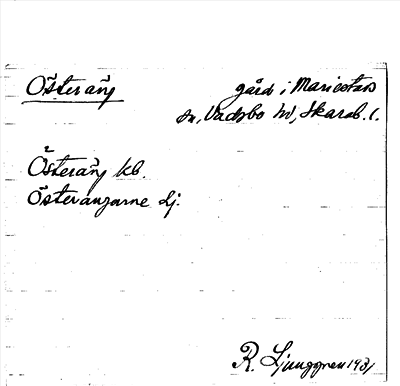 Österäng
gård i Mariestads
sn, Vadsbo hd, Skarab. l.
Österäng kb.
Österängarne Lj.
R. Ljunggren 1931